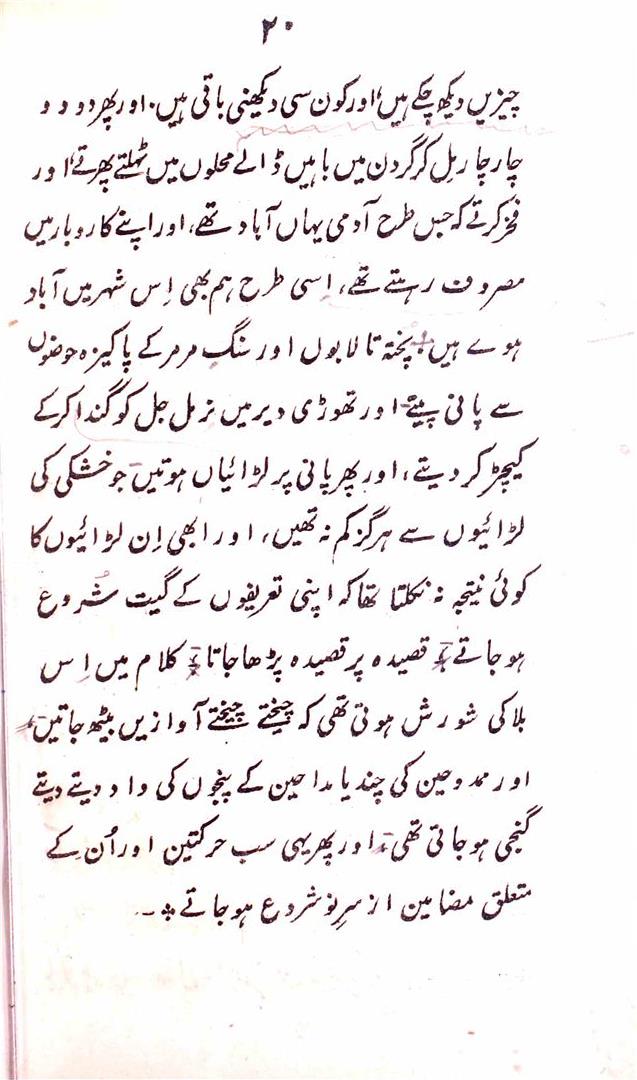 ۲۰
چیزیں دیکھ چکے ہیں، اور کون سی دیکھنی باقی ہیں۔ اور پھر دو دو
چار چار مل کر گردن میں باہیں ڈالے محلوں میں ٹہلتے پھرتے، اور
فخر کرتے کہ جس طرح آدمی یہاں آباد تھے، اور اپنے کاروبار میں
مصروف رہتے تھے، اِسی طرح ہم بھی اِس شہر میں آباد
ہوے ہیں۔ پختہ تالابوں اور سنگِ مرمر کے پاکیزہ حوضوں
سے پانی پیتے۔ اور تھوڑی دیر میں نرمل جل کو گندا کر کے
کیچڑ کر دیتے، اور پھر پانی پر لڑائیاں ہوتیں۔ جو خشکی کی
لڑائیوں سے ہرگز کم نہ تھیں، اور ابھی اِن لڑائیوں کا
کوئی نتیجہ نہ نکلتا تھا کہ اپنی تعریفوں کے گیت شروع
ہو جاتے۔ قصیدہ پر قصیدہ پڑھا جاتا۔ کلام میں اِس
بلا کی شورش ہوتی تھی کہ چیختے چیختے آوازیں بیٹھ جاتیں۔
اور ممدوحین کی چندیا مداحین کے پنجوں کی داد دیتے دیتے
گنجی ہو جاتی تھی۔ اور پھر یہی سب حرکتین اور اُن کے
متعلق مضامین از سرِ نو شروع ہو جاتے ۔